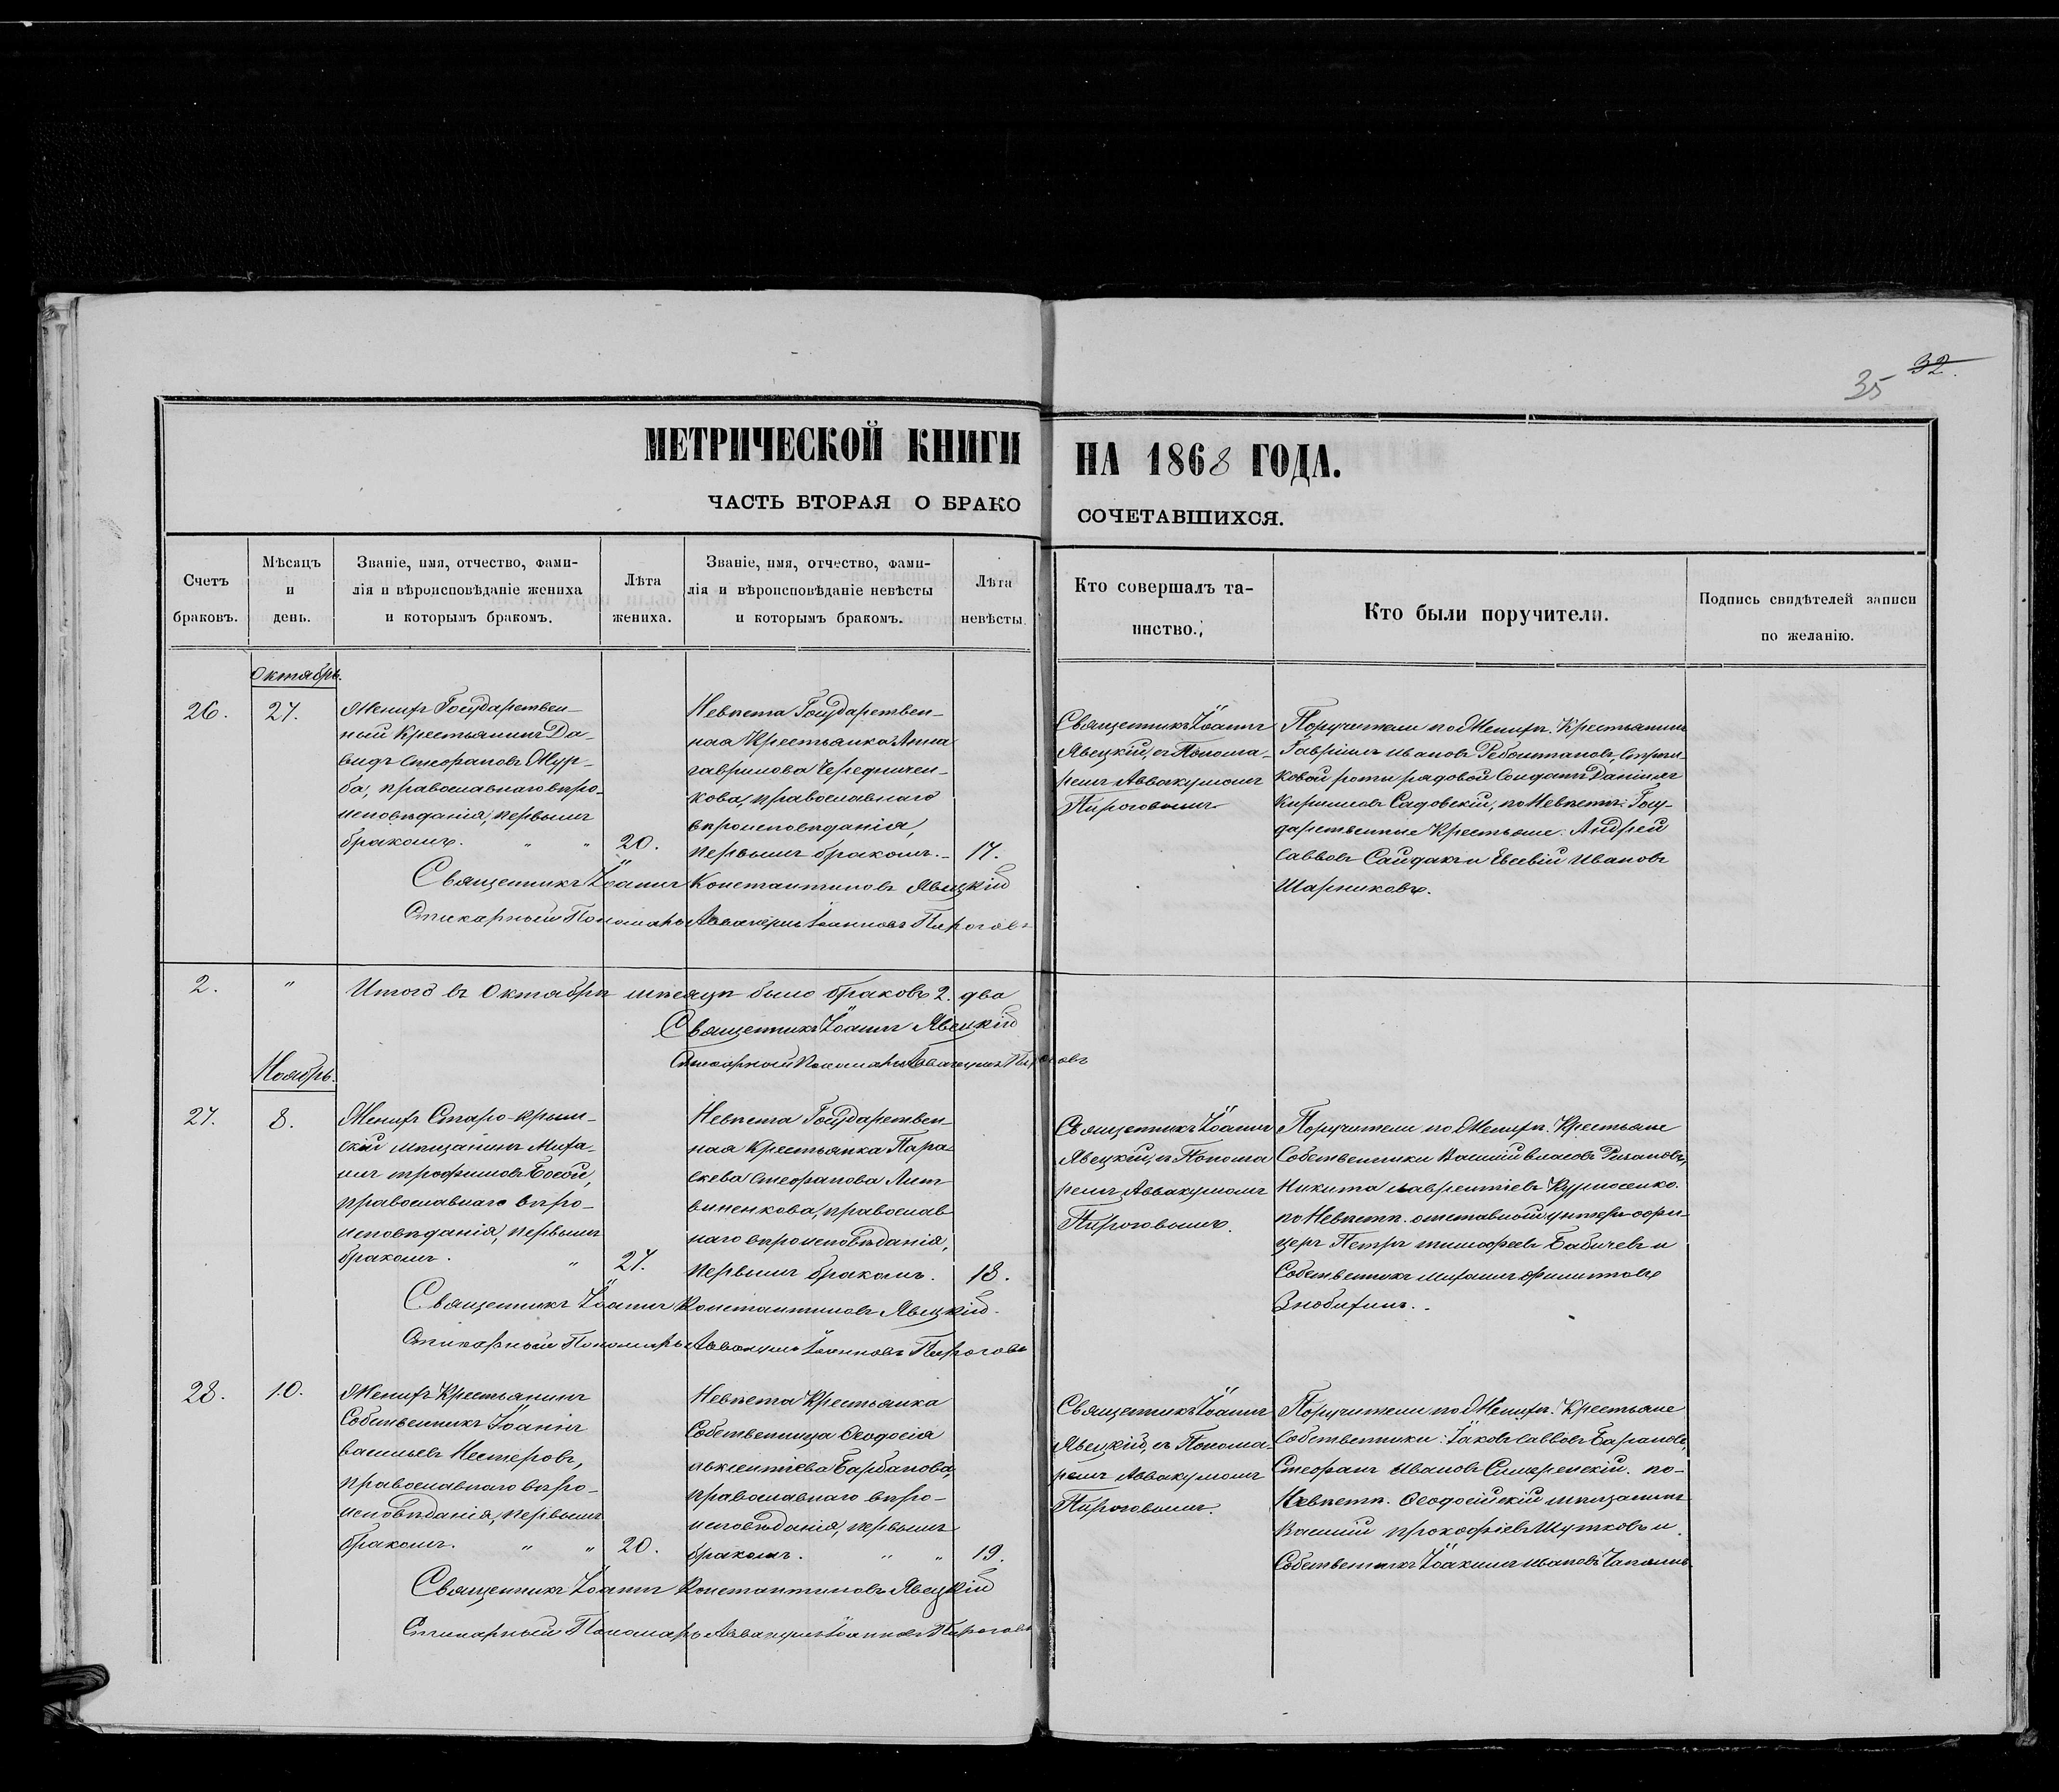 35 32.
МЕТРИЧЕСКОЙ КНИГИ НА 1868 ГОДА.
ЧАСТЬ ВТОРАЯ О БРАКО СОЧЕТАВШИХСЯ.
Счетъ браковъ.
Мѣсяцъ и день.
Званіе, имя, отчество, фами-
лія и вѣроисповѣданіе жениха
и которымъ бракомъ.
Лѣта жениха.
Званіе, имя, отчество, фами-
лія и вѣроисповѣданіе невѣсты
и которымъ бракомъ.
Лѣта невѣсты.
Кто совершалъ та-
инство.
Кто были поручители.
Подпись свидѣтелей записи
по желанію.
Октябрь.
26.
27.
Женихъ Государствен-
ный Крестьянинъ Да-
видъ Стефановъ Жур-
ба, православнаго вѣро-
исповѣданія, первымъ
бракомъ. " "
20.
Невѣста Государствен-
ная Крестьянка Анна
гаврилова Чередничен-
кова, православнаго
вѣроисповѣданія,
первымъ бракомъ.
17.
Священникъ Іоаннъ
Явецкій, съ Понома-
ремъ Аввакумомъ
Пироговымъ
Поручители по Женихѣ: Крестьянинъ
Гавріилъ Ивановъ Стрѣл-
ковой роты рядовой Солдатъ Даніилъ
Кириловъ Садовскій, по Невѣстѣ: Госу-
дарственные Крестьяне: Андрей
Саввовъ Сайдакъ и Евсевій Ивановъ
Шарниковъ.
Священникъ Іоаннъ Константиновъ Явецкій
Стихарный Пономарь Аввакумъ Іоанновъ Пироговъ
2. " Итого въ Октябрѣ мѣсяцѣ было браковъ 2. два
Священникъ Іоаннъ Явецкій
Стихарный Пономарь Аввакумъ Пироговъ
Ноябрь.
27.
8.
Женихъ Старо-Крым-
скій мѣщанинъ Миха-
илъ трофимовъ Босой,
православнаго вѣро-
исповѣданія, первымъ
бракомъ. "
27.
Невѣста Государствен-
ная Крестьянка Пара-
скева Стефанова Лит
виненкова, православ
наго вѣроисповѣданія,
первымъ бракомъ.
18.
Священникъ Іоаннъ
Явецкій, съ Понома
ремъ Аввакумомъ
Пироговымъ.
Поручители по Женихѣ: Крестьяне
Собственники Василій власовъ
Никита лаврентіевъ Курносенко.
по Невѣстѣ: отставной унтеръ-офи-
церъ Петръ тимофеевъ Бабичевъ и
Собственникъ Михаилъ филиповъ
Знобихинъ.
Священникъ Іоаннъ Константиновъ Явецкій.
Стихарный Пономарь Аввакумъ Іоанновъ Пироговъ
28.
10.
Женихъ Крестьянинъ
Собственникъ Іоаннъ
васильевъ Нестеровъ,
православнаго вѣро-
исповѣданія, первымъ
бракомъ. " "
20.
Невѣста Крестьянка
Собственница Феодосія
авксентіева Барбанова,
православнаго вѣро-
исповѣданія, первымъ
бракомъ. " "
19.
Священникъ Іоаннъ
Явецкій, съ Понома-
ремъ Аввакумомъ
Пироговымъ.
Поручители по Женихѣ: Крестьяне
Собственники: Іаковъ Саввовъ Барановъ,
Стефанъ Ивановъ Симеренскій. по-
Невѣстѣ: Феодосійскій мѣщанинъ
Василій прокофіевъ Шутковъ и
Собственникъ Іоакимъ ивановъ
Священникъ Іоаннъ Константиновъ Явецкій
Стихарный Пономарь Аввакумъ Іоанновъ Пироговъ